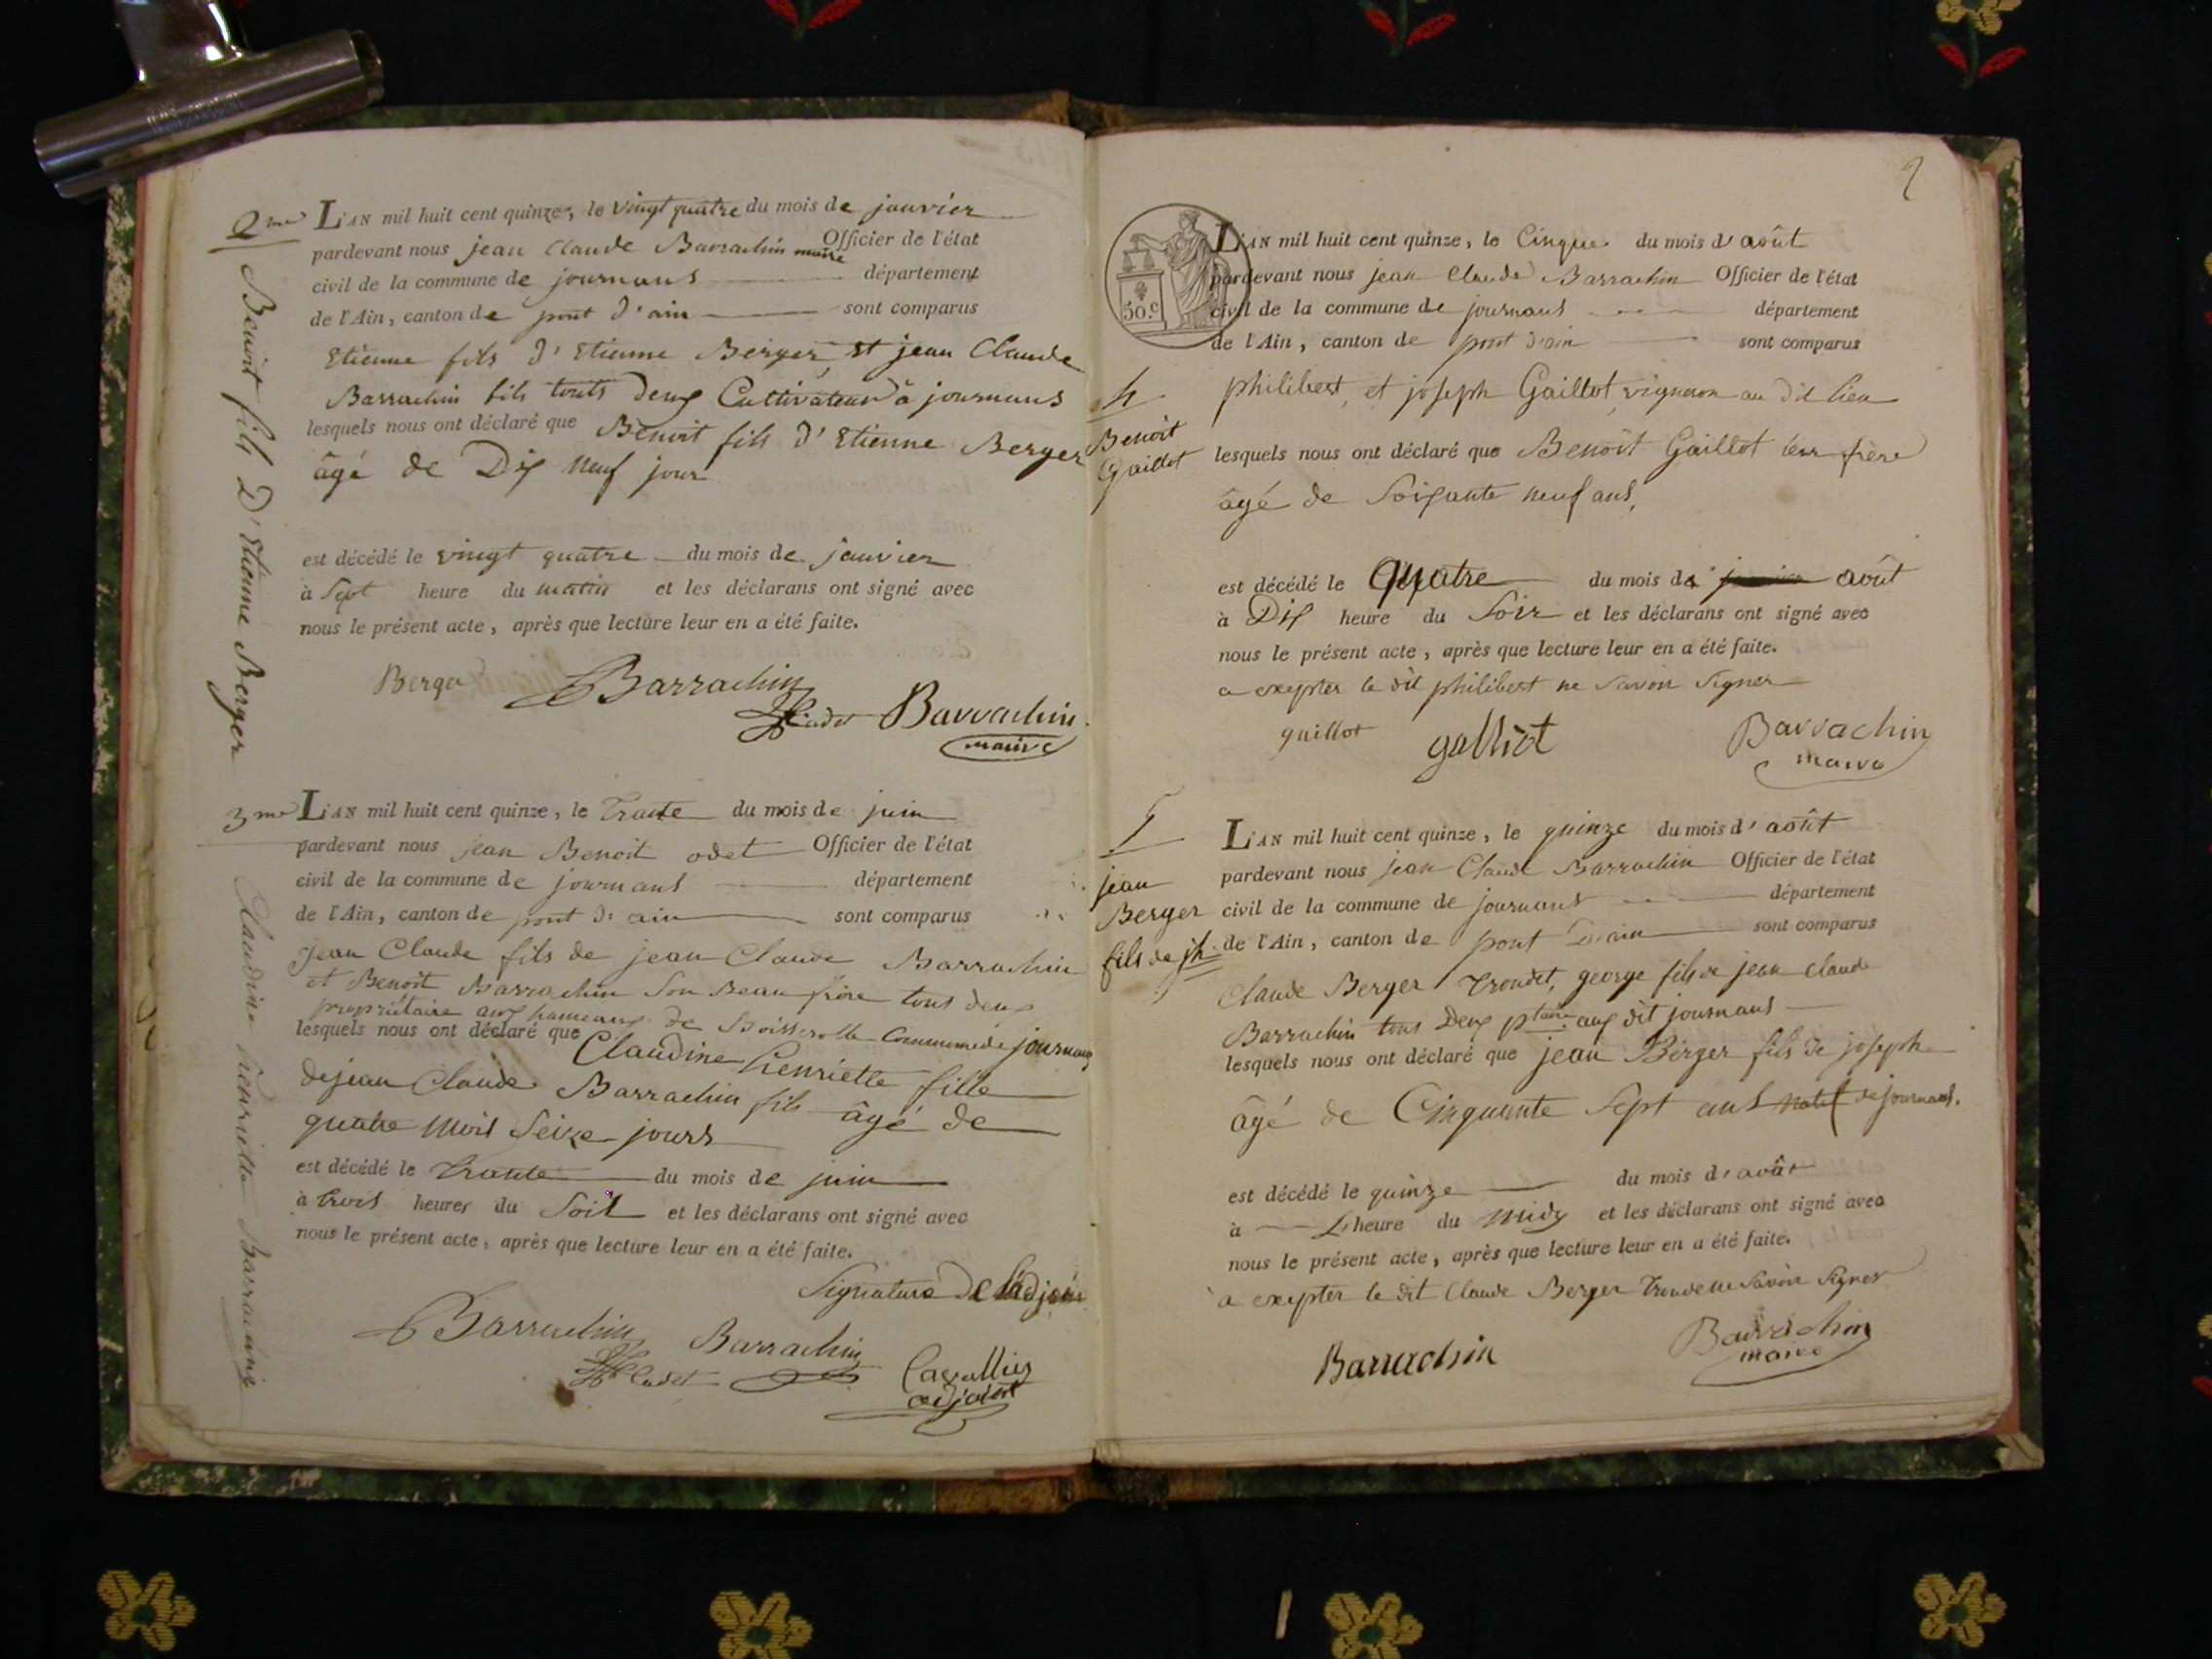 2me
Benoit fils D'Etienne Berger
L'AN mil huit cent quinze, le vingt quatre du mois de janvier
pardevant nous jean Claude Barrachin maire Officier de l'état
civil de la commune de journans département
de l'Ain, canton de pont d'ain sont comparus
Etienne fils d'Etienne Berger, et jean Claude
Barrachin fils touts deux Cultivateur à journans
lesquels nous ont déclaré que Benoit fils d'Etienne Berger
âgé de Dix neuf jour
est décédé le vingt quatre du mois de janvier
à Sept heure du matin et les déclarans ont signé avec
nous le présent acte, après que lecture leur en a été faite.
Berger Barrachin
Cadet Barrachin
maire
3me
Claudine henriette Barrachin
L'AN mil huit cent quinze, le Trante du mois de juin
pardevant nous jean Benoit odet Officier de l'état
civil de la commune de journans département
de l'Ain, canton de pont d'ain sont comparus
Jean Claude fils de jean Claude Barrachin
et Benoit Barrachin Son Beau frère tous deux
propriétaire aux hameaux de Boisserolle Commune de journans
lesquels nous ont déclaré que Claudine henriette fille
de jean Claude Barrachin fils âgé de
quatre mois Seize jours
est décédé le trante du mois de juin
à trois heures du Soir et les déclarans ont signé avec
nous le présent acte, après que lecture leur en a été faite.
Signature De l'adjoin
Barrachin Barrachin
Cadet Cavallier
adjoint
2
50.c
L'AN mil huit cent quinze, le Cinque du mois d'août
pardevant nous jean Claude Barrachin Officier de l'état
civil de la commune de journans département
de l'Ain, canton de pont d'ain sont comparus
4
Benoit
Gaillot
philibert, et joseph Gaillot, vigneron au dit lieu
lesquels nous ont déclaré que Benoit Gaillot leur frère
âgé de Soixante neuf ans,
est décédé le Quatre du mois de janvier août
à Dix heure du Soir et les déclarans ont signé avec
nous le présent acte, après que lecture leur en a été faite.
a exepter le dit philibert ne savoir signer
guillot galliot Barrachin
maire
5
jean
Berger
fils de jh
L'AN mil huit cent quinze, le quinze du mois d'août
pardevant nous jean Claude Barrachin Officier de l'état
civil de la commune de journans département
de l'Ain, canton de pont D'ain sont comparus
Claude Berger Trondet, george fils de jean Claude
Barrachin tous Deux ptaire aux dit journans
lesquels nous ont déclaré que jean Berger fils de joseph
âgé de Cinquante Sept ans natif de journans.
est décédé le quinze du mois d'août
à heure du midy et les déclarans ont signé avec
nous le présent acte, après que lecture leur en a été faite.
a exepter le dit Claude Berger Signer
Barrachin Barrachin
maire